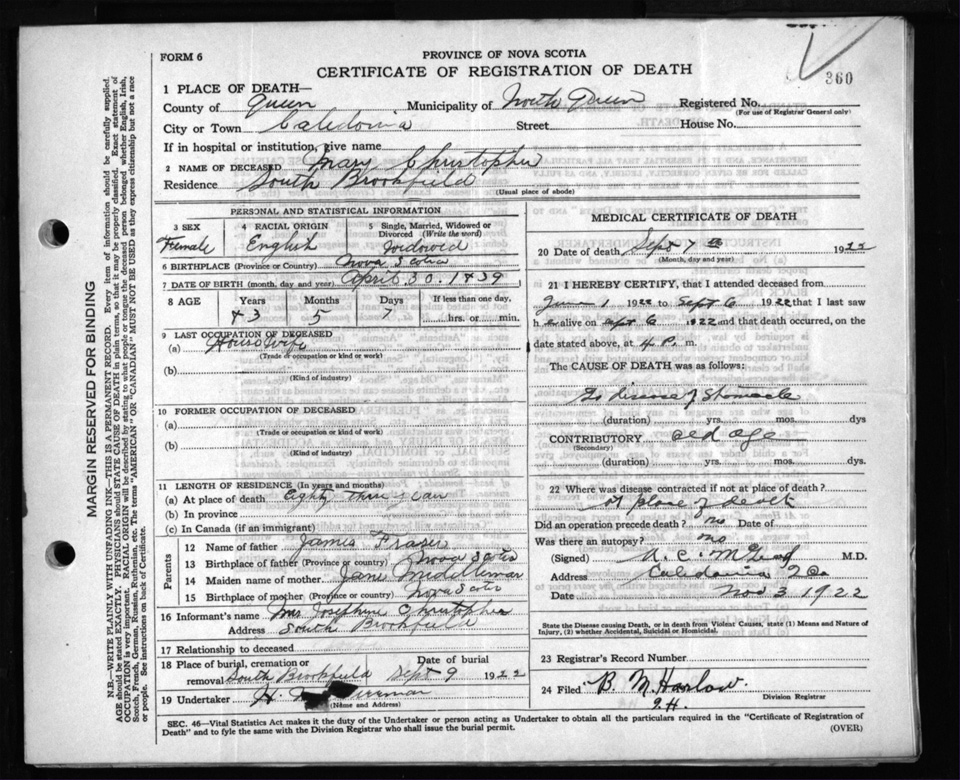 FORM 6
PROVINCE OF NOVA SCOTIA
CERTIFICATE OF REGISTRATION OF DEATH
360
1 PLACE OF DEATH—
County of Queen Municipality of North Queen Registered No.
(For use of Registrar General only)
City or Town Caledonia Street House No.
If in hospital or institution, give name
2 NAME OF DECEASED Mary Christopher
Residence South Brookfield
(Usual place of abode)
PERSONAL AND STATISTICAL INFORMATION
3 SEX Female
4 RACIAL ORIGIN English
5 Single, Married, Widowed or Divorced (Write the word) Widowed
6 BIRTHPLACE (Province or Country) Nova Scotia
7 DATE OF BIRTH (month, day and year) April 30. 1839
8 AGE Years Months Days If less than one day,
83 5 7 hrs. or min.
9 LAST OCCUPATION OF DECEASED
(a) House wife
(Trade or occupation or kind of work)
(b)
(Kind of industry)
10 FORMER OCCUPATION OF DECEASED
(a)
(Trade or occupation or kind of work)
(b)
(Kind of industry)
11 LENGTH OF RESIDENCE (In years and months)
(a) At place of death Eighty three years
(b) In province
(c) In Canada (if an immigrant)
Parents
12 Name of father James Fraser
13 Birthplace of father (Province or country) Nova Scotia
14 Maiden name of mother Jane
15 Birthplace of mother (Province or country) Nova Scotia
16 Informant's name Mrs Josephine Christopher
Address South Brookfield
17 Relationship to deceased
18 Place of burial, cremation or removal South Brookfield Date of burial Sept 9 1922
19 Undertaker H.
(Name and Address)
MEDICAL CERTIFICATE OF DEATH
20 Date of death Sept 7th 1922
(Month, day and year)
21 I HEREBY CERTIFY, that I attended deceased from
June 1 1922 to Sept 6 1922 that I last saw
h er alive on Sept 6 1922 and that death occurred, on the
date stated above, at 4 P. m.
The CAUSE OF DEATH was as follows:
disease of Stomach
(duration) yrs. mos. dys
CONTRIBUTORY old age
(Secondary)
(duration) yrs. mos. dys.
22 Where was disease contracted if not at place of death?
at place of death
Did an operation precede death? no Date of
Was there an autopsy? no
(Signed) M.D.
Address Caledonia Q Co
Date Nov 3 1922
State the Disease causing Death, or in death from Violent Causes, state (1) Means and Nature of Injury, (2) whether Accidental, Suicidal or Homicidal.
23 Registrar's Record Number
24 Filed B. M. Harlow
Division Registrar
SEC. 46—Vital Statistics Act makes it the duty of the Undertaker or person acting as Undertaker to obtain all the particulars required in the "Certificate of Registration of Death" and to fyle the same with the Division Registrar who shall issue the burial permit.
(OVER)
MARGIN RESERVED FOR BINDING
N.B.—WRITE PLAINLY WITH UNFADING INK—THIS IS A PERMANENT RECORD. Every item of information should be carefully supplied.
AGE should be stated EXACTLY. PHYSICIANS should STATE CAUSE OF DEATH in plain terms, so that it may be properly classified. Exact statement of
OCCUPATION is very important. RACIAL ORIGIN will be described by stating to what people or tongue the deceased person belonged, whether English, Irish,
Scotch, French, German, Russian, Ruthenian, etc. The terms "AMERICAN" OR "CANADIAN" MUST NOT BE USED as they express citizenship but not a race
or people. See instructions on back of Certificate.